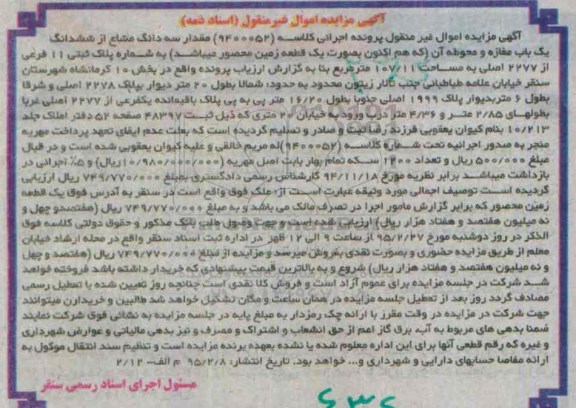 آگهی مزایده اموال غیرمنقول (اسناد ذمه)
آگهی مزایده اموال غیر منقول پرونده اجرائی کلاسه (۹۴۰۰۰۵۲) مقدار سه دانگ مشاع از ششدانگ
یک باب مغازه و محوطه آن (که هم اکنون بصورت یک قطعه زمین محصور میباشد) به شماره پلاک ثبتی ۱۱ فرعی
از ۲۲۷۷ اصلی به مساحت ۱۰۷/۱۱ مترمربع بنا به گزارش ارزیاب پرونده واقع در بخش ۱۰ کرمانشاه شهرستان
سنقر خیابان علامه طباطبائی جنب تالار زیتون محدود به حدود: شمالا بطول ۲۰ متر دیوار بپلاک ۲۲۷۸ اصلی و شرقا
بطول ۶ متر بدیوار پلاک ۱۹۹۹ اصلی جنوبا بطول ۱۶/۲۰ متر پی به پی پلاک باقیمانده یکفرعی از ۲۲۷۷ اصلی غربا
بطولهای ۲/۸۵ متر و ۴/۳۶ متر درب ورود به خیابان ۲۰ متری که ذیل ثبت ۴۸۳۹۷ صفحه ۵۲ دفتر املاک جلد
۱۰/۲۱۳ بنام کیوان یعقوبی فرزند رضا ثبت و صادر و تسلیم گردیده است که بعلت عدم ایفای تعهد پرداخت مهریه
منجر به صدور اجرائیه تحت شماره کلاسه (۹۴۰۰۰۵۲) له مریم خالقی و علیه کیوان یعقوبی شده است و در قبال
مبلغ ۵۰۰/۰۰۰ ریال و تعداد ۱۲۰۰ سکه تمام بهار بابت اصل مهریه (۱۰/۹۸۰/۵۰۰/۰۰۰ ریال) و ۵٪ اجرائی در
بازداشت میباشد برابر نظریه مورخ ۹۴/۱۱/۱۸ کارشناس رسمی دادگستری بمبلغ ۷۴۹/۷۷۰/۰۰۰ ریال ارزیابی
گردیده است توصیف اجمالی مورد وثیقه عبارت است از: ملک فوق واقع است در سنقر به آدرس فوق یک قطعه
زمین محصور که برابر گزارش مامور اجرا در تصرف مالک می باشد و به مبلغ ۷۴۹/۷۷۰/۰۰۰ ریال (هفتصدو چهل و
نه میلیون هفتصد و هفتاد هزار ریال) ارزیابی شده است و جهت وصول طلب بانک مذکور و حقوق دولتی کلاسه فوق
الذکر در روز دوشنبه مورخ ۹۵/۲/۲۷ از ساعت ۹ الی ۱۲ ظهر در اداره ثبت اسناد سنقر واقع در محله ارشاد خیابان
معلم از طریق مزایده حضوری و بصورت نقدی بفروش میرسد و مزایده از مبلغ ۷۴۹/۷۷۰/۰۰۰ ریال (هفتصد و چهل
و نه میلیون هفتصد و هفتاد هزار ریال) شروع و به بالاترین قیمت پیشنهادی که خریدار داشته باشد فروخته خواهد
شد شرکت در جلسه مزایده برای عموم آزاد است و فروش کلا نقدی است چنانچه روز تعیین شده با تعطیل رسمی
مصادف گردد روز بعد از تعطیل جلسه مزایده در همان ساعت و مکان تشکیل خواهد شد طالبین و خریداران میتوانند
جهت شرکت در مزایده در وقت مقرر با ارائه چک رمزدار به مبلغ پایه در جلسه مزایده به نشانی فوق شرکت نمایند
ضمنا بدهی های مربوط به آب، برق گاز اعم از حق انشعاب و اشتراک و مصرف و نیز بدهی مالیاتی و عوارض شهرداری
و غیره که رقم قطعی آنها برای این اداره معلوم شده یا نشده بعهده برنده مزایده است و تنظیم سند انتقال موکول به
ارائه مفاصا حسابهای دارایی و شهرداری و... خواهد بود. تاریخ انتشار: ۹۵/۲/۸ م الف- ۲/۱۲
مسئول اجرای اسناد رسمی سنقر